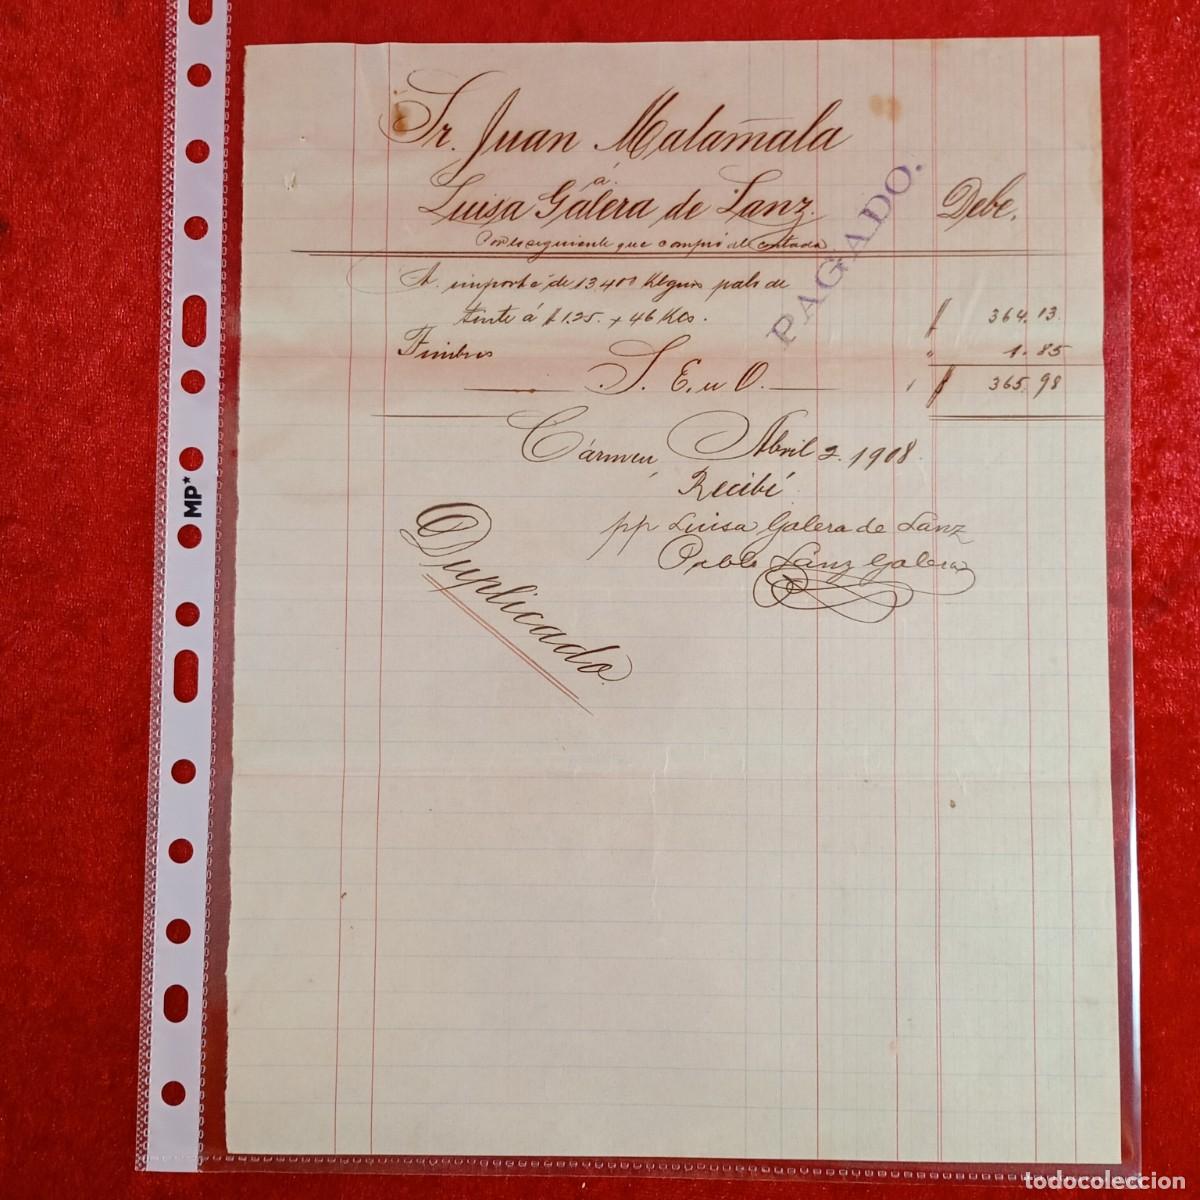 Sr. Juan Malamala
á
Luisa Galera de Lanz. Debe.
Por lo siguiente que compró al contado
A importe de 13.400 Klgms palo de
tinte á $1.25. + 46 Kls. $ 364.13.
Timbres " 1.85
S. E. u O. $ 365.98
Cármen, Abril 2. 1908.
Recibí
pp Luisa Galera de Lanz
Pablo Lanz Galera
Duplicado.
PAGADO.
MP*
todocoleccion